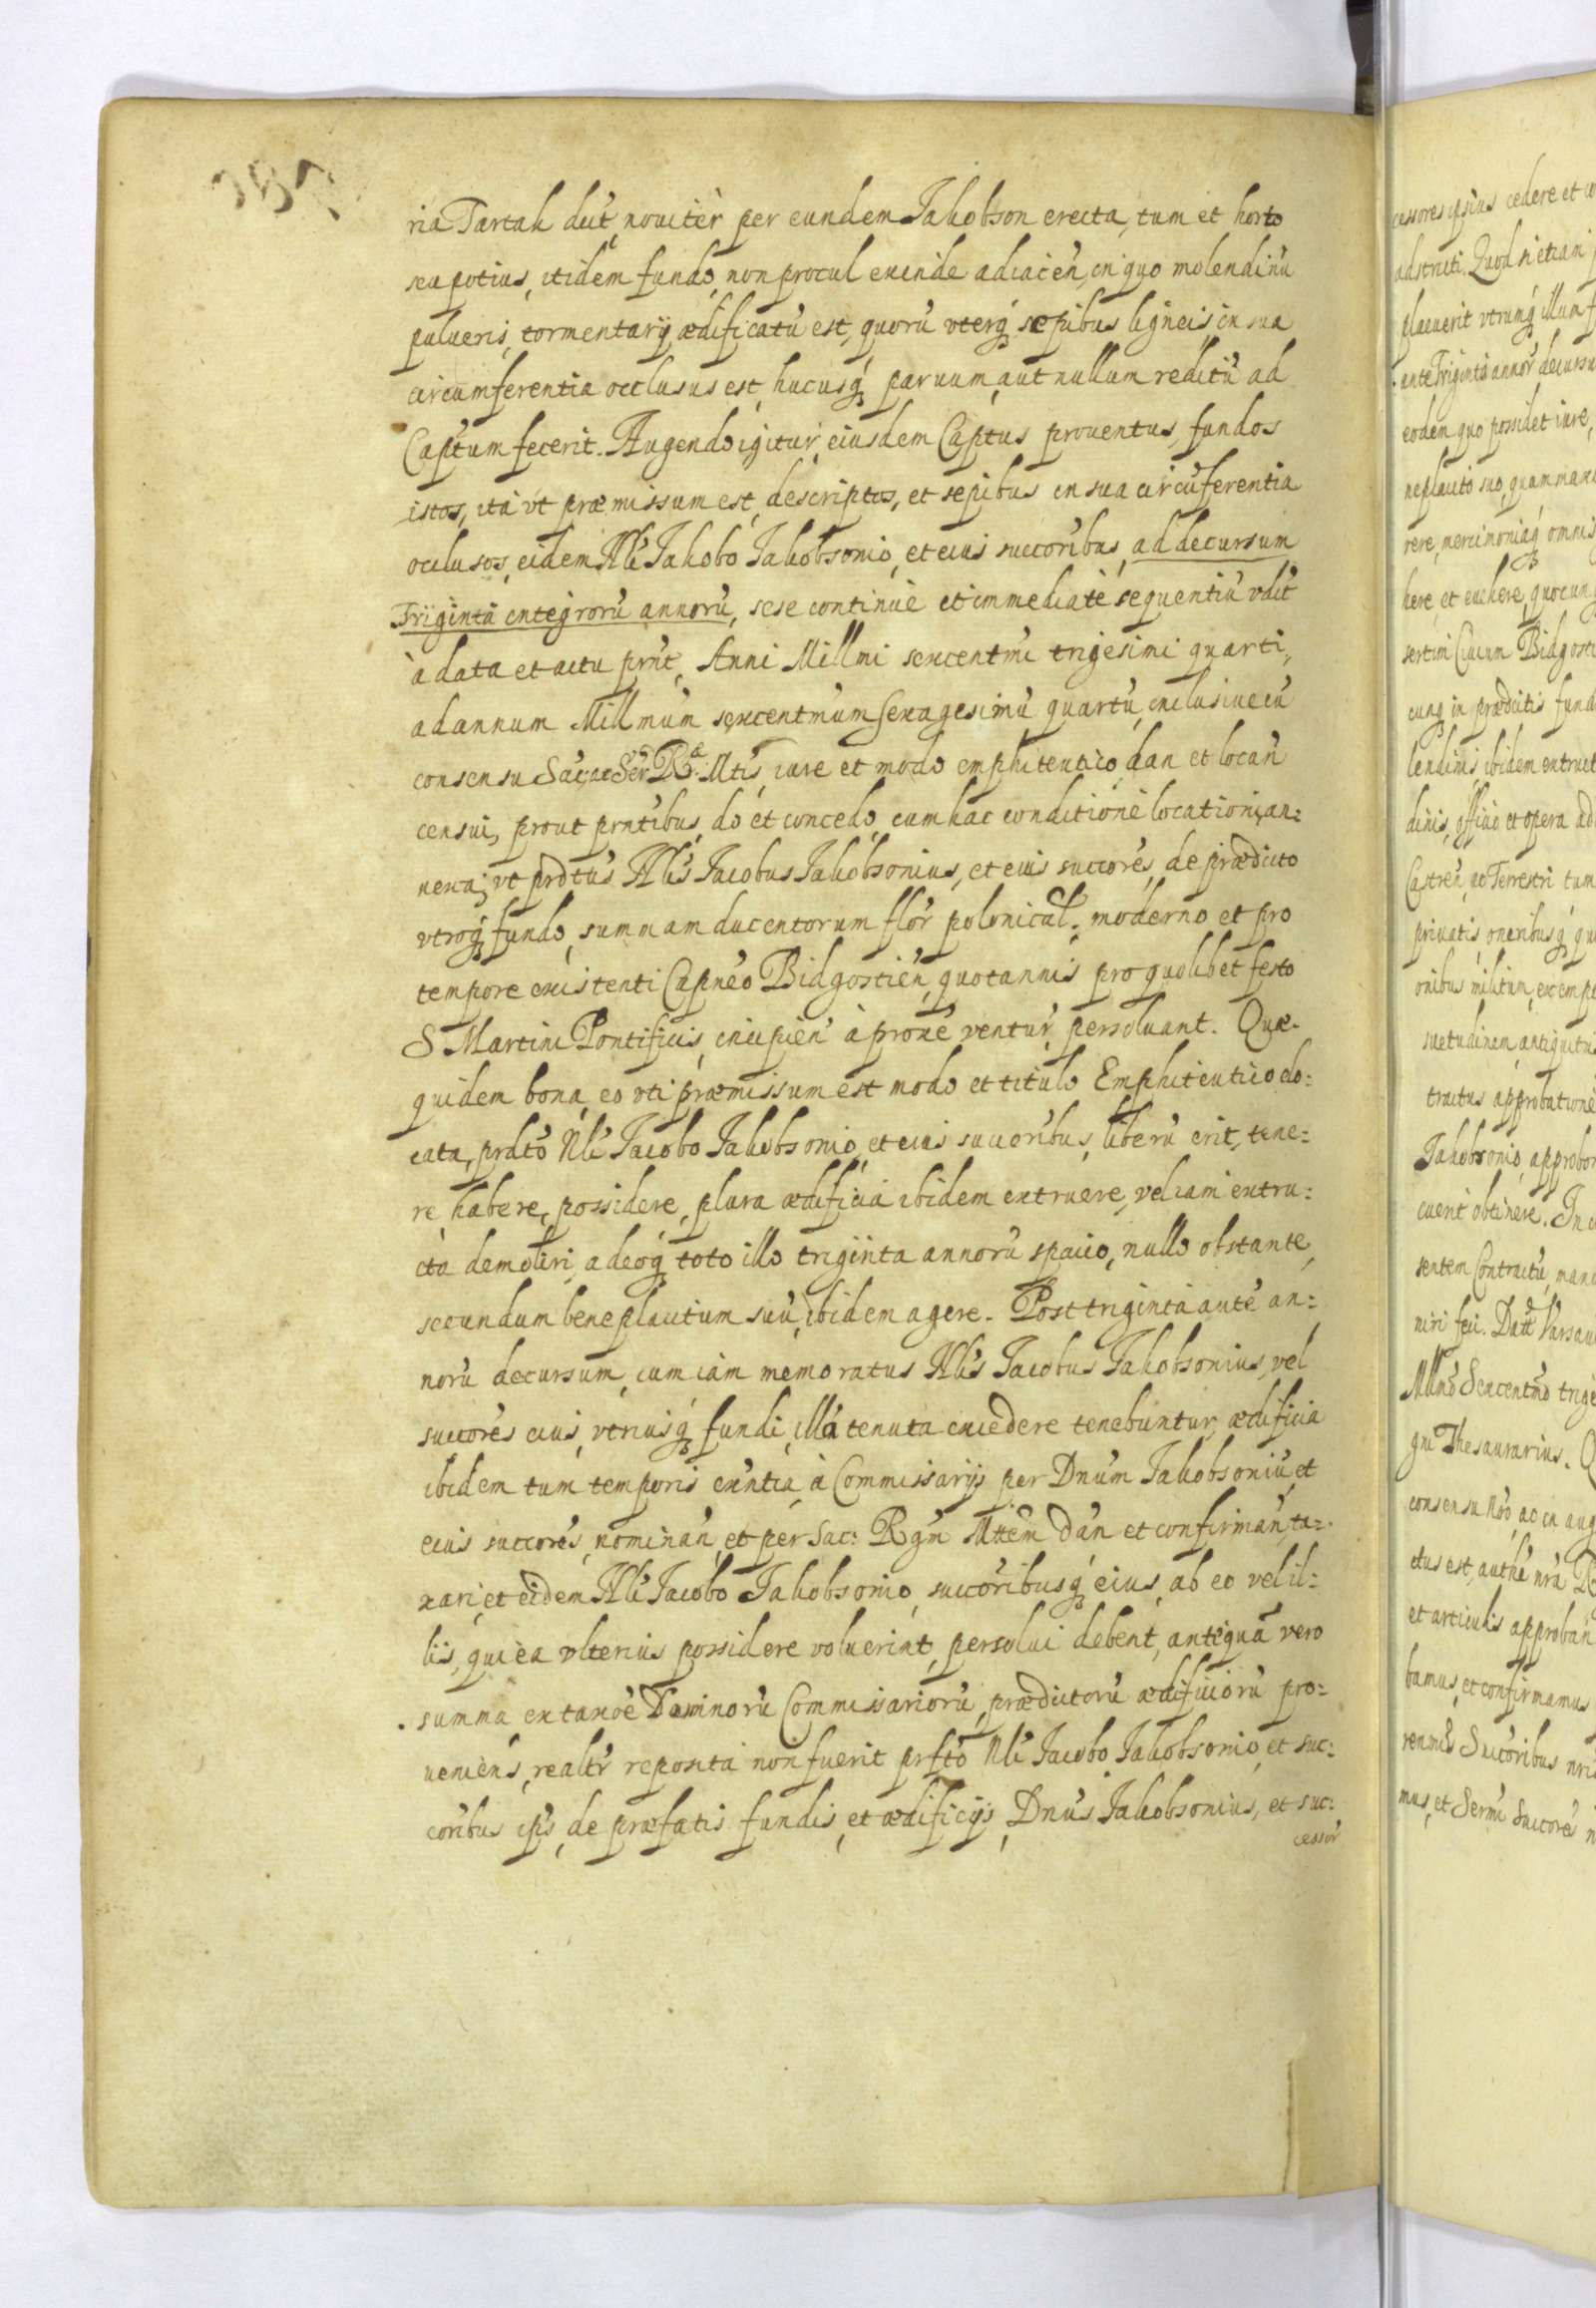 387
ria Tartak dict, noviter per eundem Jakobson erecta, tum et horto
seu potius, itidem fundo, non procul exinde adiacen, in quo molendinu
pulueris, tormentarij ædificatu est, quoru uterq sepibus ligneis, in sua
circumferentia occlusus est, hucusq paruum, aut nullum reditu ad
Captum fecerit. Augendo igitur, eiusdem Captus prouentus, fundos
istos, ita vt præmissum est, descriptos, et sepibus in sua circuferentia
occlusos, eidem Nli Jakobo Jakobsonio, et eius succoribus, ad decursum
Triginta integroru annoru, sese continuè et immediatè sequentiu vdlt
à data et actu pnt, Anni Millmi sexcentmi trigesimi quarti,
ad annum Millmum sexcentmum sexagesimu quartu, inclusiue cu
consensu Sac, ac Ser Ra Mtis, iure et modo emphiteutico, dan et locan
censui, prout pntibus, do et concedo, cum hac conditione locationi, an:
nexa; vt prdtus Nlis Jacobus Jakobsonius, et eius succores, de prædicto
vtroq fundo, summam ducentorum flor polonical. moderno et pro
tempore existenti Capneo Bidgostien, quotannis pro quolibet festo
S Martini Pontificis, incipien à proxe ventur, persoluant. Quæ.
quidem bona, eo vti præmissum est modo et titulo Emphiteutico lo:
cata, prdto Nli Jacobo Jakobsonio, et eius succoribus, liberu erit, tene:
re, habere, possidere, plura ædificia ibidem extruere, vel iam extru:
cta demoliri, adeoq toto illo triginta annoru spacio, nullo obstante,
secundum beneplacitum suu, ibidem agere. Post triginta aute an:
noru decursum, cum iam memoratus Nlis Jacobus Jakobsonius, vel
succores eius, vtriusq fundi, illa tenuta excedere tenebuntur, ædificia
ibidem tum temporis exntia, à Commissarijs per Dnum Jakobsoniu, et
eius succores, nominan, et per Sac: Rgm Mttem dan et confirman, ta:
xari, et eidem Nli Jacobo Jakobsonio, succoribusq eius, ab eo vel il:
lis, qui ea vlterius possidere voluerint, persolui debent, antequa vero
summa ex taxoe Dominoru Commissarioru, prædictoru ædificioru pro:
ueniens, realtr reposita non fuerit prfto Nli Jacobo Jakobsonio, et suc:
coribus ips, de præfatis fundis, et ædificijs, Dnus Jakobsonius, et suc:
cessor
cessores ipsius cedere et
adstricti. Quod si etiam
placuerit vtrumq illum
ante Triginta annor decursu
eodem quo possidet iure,
neplacito suo, quam maxi
rere, mercimoniaq omnis
here, et euehere, quocunq
sertim Ciuium Bidgosti
cunq in prædictis fund
lendinis, ibidem extruct
dinis, officio et opera ad
Castren, ac Terrestri tum
priuatis, oneribusq qu
onibus militum, exempt
suetudinem, antiquitu
tractus approbatione
Jakobsonio, approbo
cuerit obtinere. In
sentem Contractu, manu
niri feci. Datt Varsau
Millmo Sexcentmo trige
gni Thesaurarius. Q
consensu Nro, ac in aug
ctus est, authe nra R
et articulis approban
bamus, et confirmamus
renmis Succoribus nris
mus, et Sermi Succores n